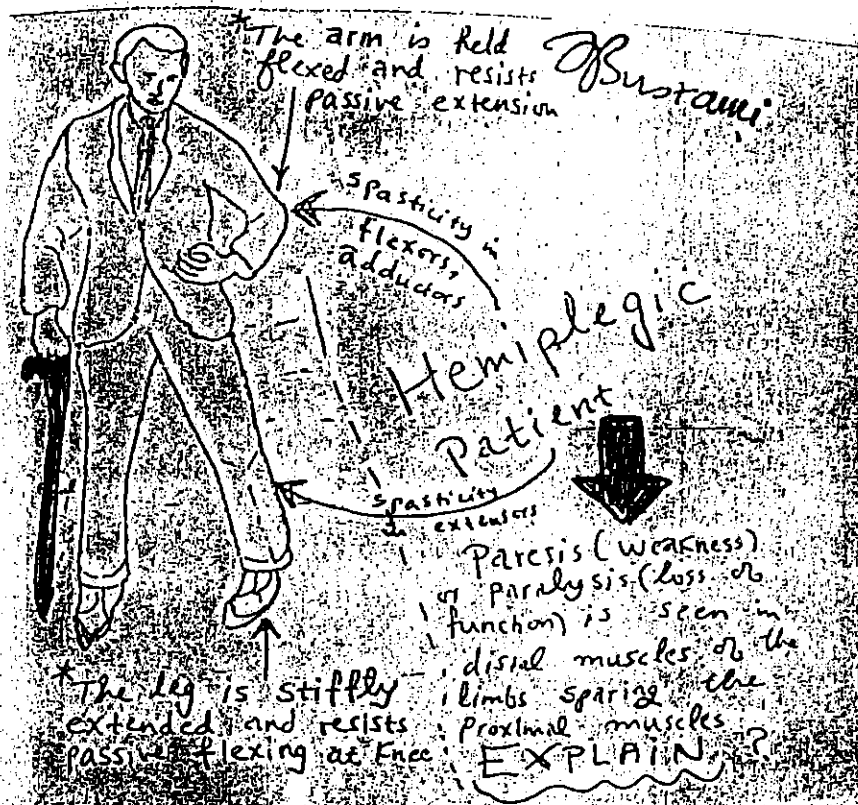 *The arm is held
flexed and resists
passive extension
Bustami
spasticity in
flexors,
adductors
Hemiplegic
Patient
spasticity
in extensors
Paresis (weakness)
or paralysis (loss of
function) is seen in
distal muscles of the
limbs sparing the
proximal muscles
EXPLAIN ?
*The leg is stiffly
extended and resists
passive flexing at knee